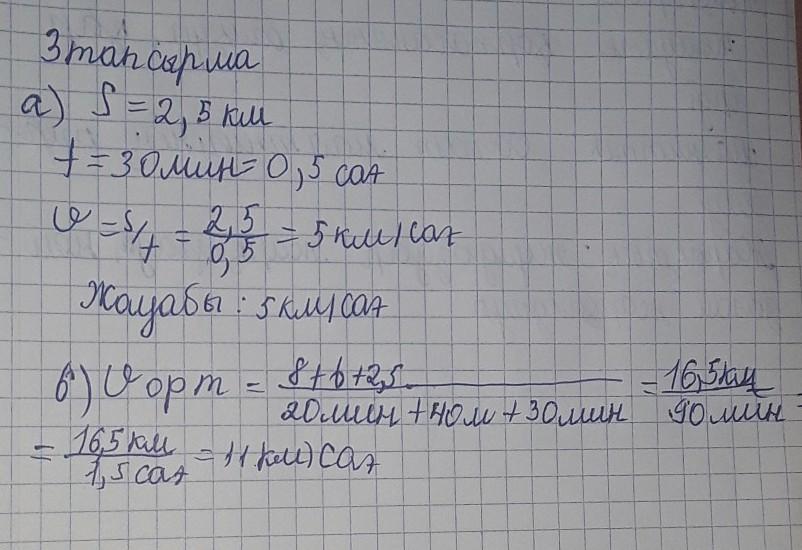 3 тапсырма
а) S = 2,5 км
t = 30 мин = 0,5 сағ
υ = s/t = 2,5/0,5 = 5 км/сағ
Жауабы: 5 км/сағ
б) υ орт = 8+6+2,5 / 20мин+40м+30мин = 16,5км / 90мин =
= 16,5 км / 1,5 сағ = 11 км/сағ